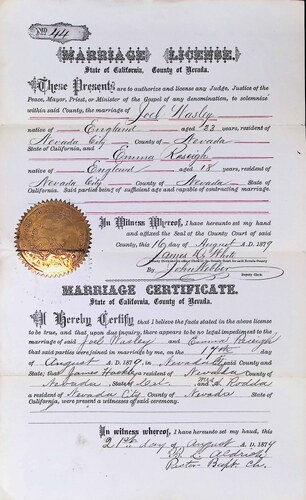 No 44
MARRIAGE LICENSE.
State of California, County of Nevada.
These Presents are to authorize and license any Judge, Justice of the
Peace, Mayor, Priest, or Minister of the Gospel of any denomination, to solemnize
within said County, the marriage of Joel Wasley
native of England aged 23 years, resident of
Nevada City County of Nevada
State of California, and Emma Raleigh
native of England aged 18 years, resident of
Nevada City County of Nevada State of
California. Said parties being of sufficient age and capable of contracting marriage.
In Witness Whereof, I have hereunto set my hand
and affixed the Seal of the County Court of said
County, this 16 day of August A.D. 1879
James H. White
By John Webber
Deputy Clerk.
MARRIAGE CERTIFICATE.
State of California, County of Nevada.
I Hereby Certify that I believe the facts stated in the above license
to be true, and that, upon due inquiry, there appears to be no legal impediment to the
marriage of said Joel Wasley and Emma Raleigh
that said parties were joined in marriage by me, on the 17th day
of August A.D. 1879, in Nevada City said County and
State; that James Hackley a resident of Nevada
Nevada State Cal. and Rodda
a resident of Nevada City County of Nevada State of
California, were present a witnesses of said ceremony.
In witness whereof, I have hereunto set my hand, this
21st day of August A.D. 1879
Aldrich
Pastor Bapt. Ch.